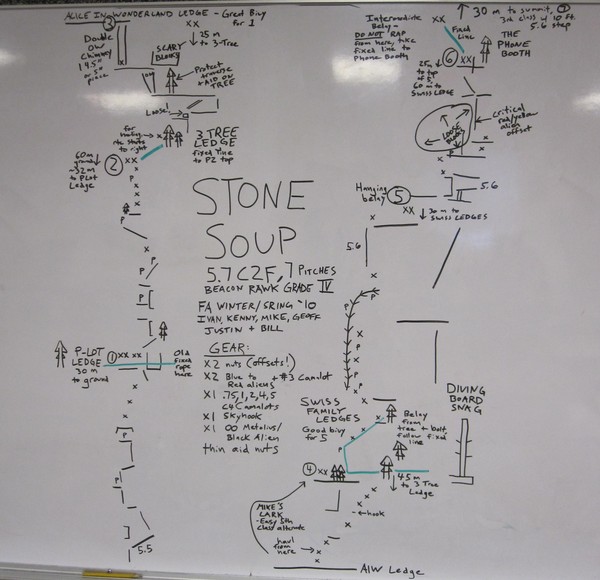 ALICE IN WONDERLAND LEDGE - Great Bivy
for 1
③
XX
↓ 25 m
to 3-Tree
Double
OW
Chimney
14.5"
or 5"
piece
SCARY
BLOCKY
Protect
traverse
+ AID ON
TREE
Loose!
for
hauling
rte stays
to right
3-TREE
LEDGE
fixed line
to P2 top
60m
ground
~32m
to PLot
Ledge
② XX
P
P
P
P
P
P
STONE
SOUP
5.7 C2F, 7 PITCHES
BEACON RAWK GRADE IV
FA WINTER/SRING '10
IVAN, KENNY, MIKE, GEOFF
JUSTIN + BILL
GEAR:
X2 nuts (offsets!)
X2 Blue to + #3 Camalot
Red aliens
X1 .75, 1, 2, 4, 5
C4 Camalots
X1 Skyhook
X1 00 Metolius/
Black Alien
thin aid nuts
P-LOT
LEDGE
30 m
to ground
① XX XX
Old
fixed
rope
here
P
P
5.5
Intermediate
Belay -
DO NOT RAP
from here, take
fixed line to
Phone Booth
XX
Fixed
line
30 m to summit,
3rd class w/ 10 ft.
5.6 step
⑦
THE
PHONE
BOOTH
⑥ XX
25m
to top
of 5
60 m to
Swiss Ledges
LOOSE
BLOCK
critical
red/yellow
alien
offset
5.6
Hanging
belay
⑤
XX
↓ 30 m to
SWISS LEDGES
5.6
P
P
P
P
P
SWISS
FAMILY
LEDGES
Good bivy
for 5
Belay
from
tree + bolt
follow fixed
line
DIVING
BOARD
SNAG
P
④ XX
45 m
to 3 Tree
Ledge
MIKE'S
LARK
- Easy 5th
class alternate
←hook
haul
from
here
AIW Ledge